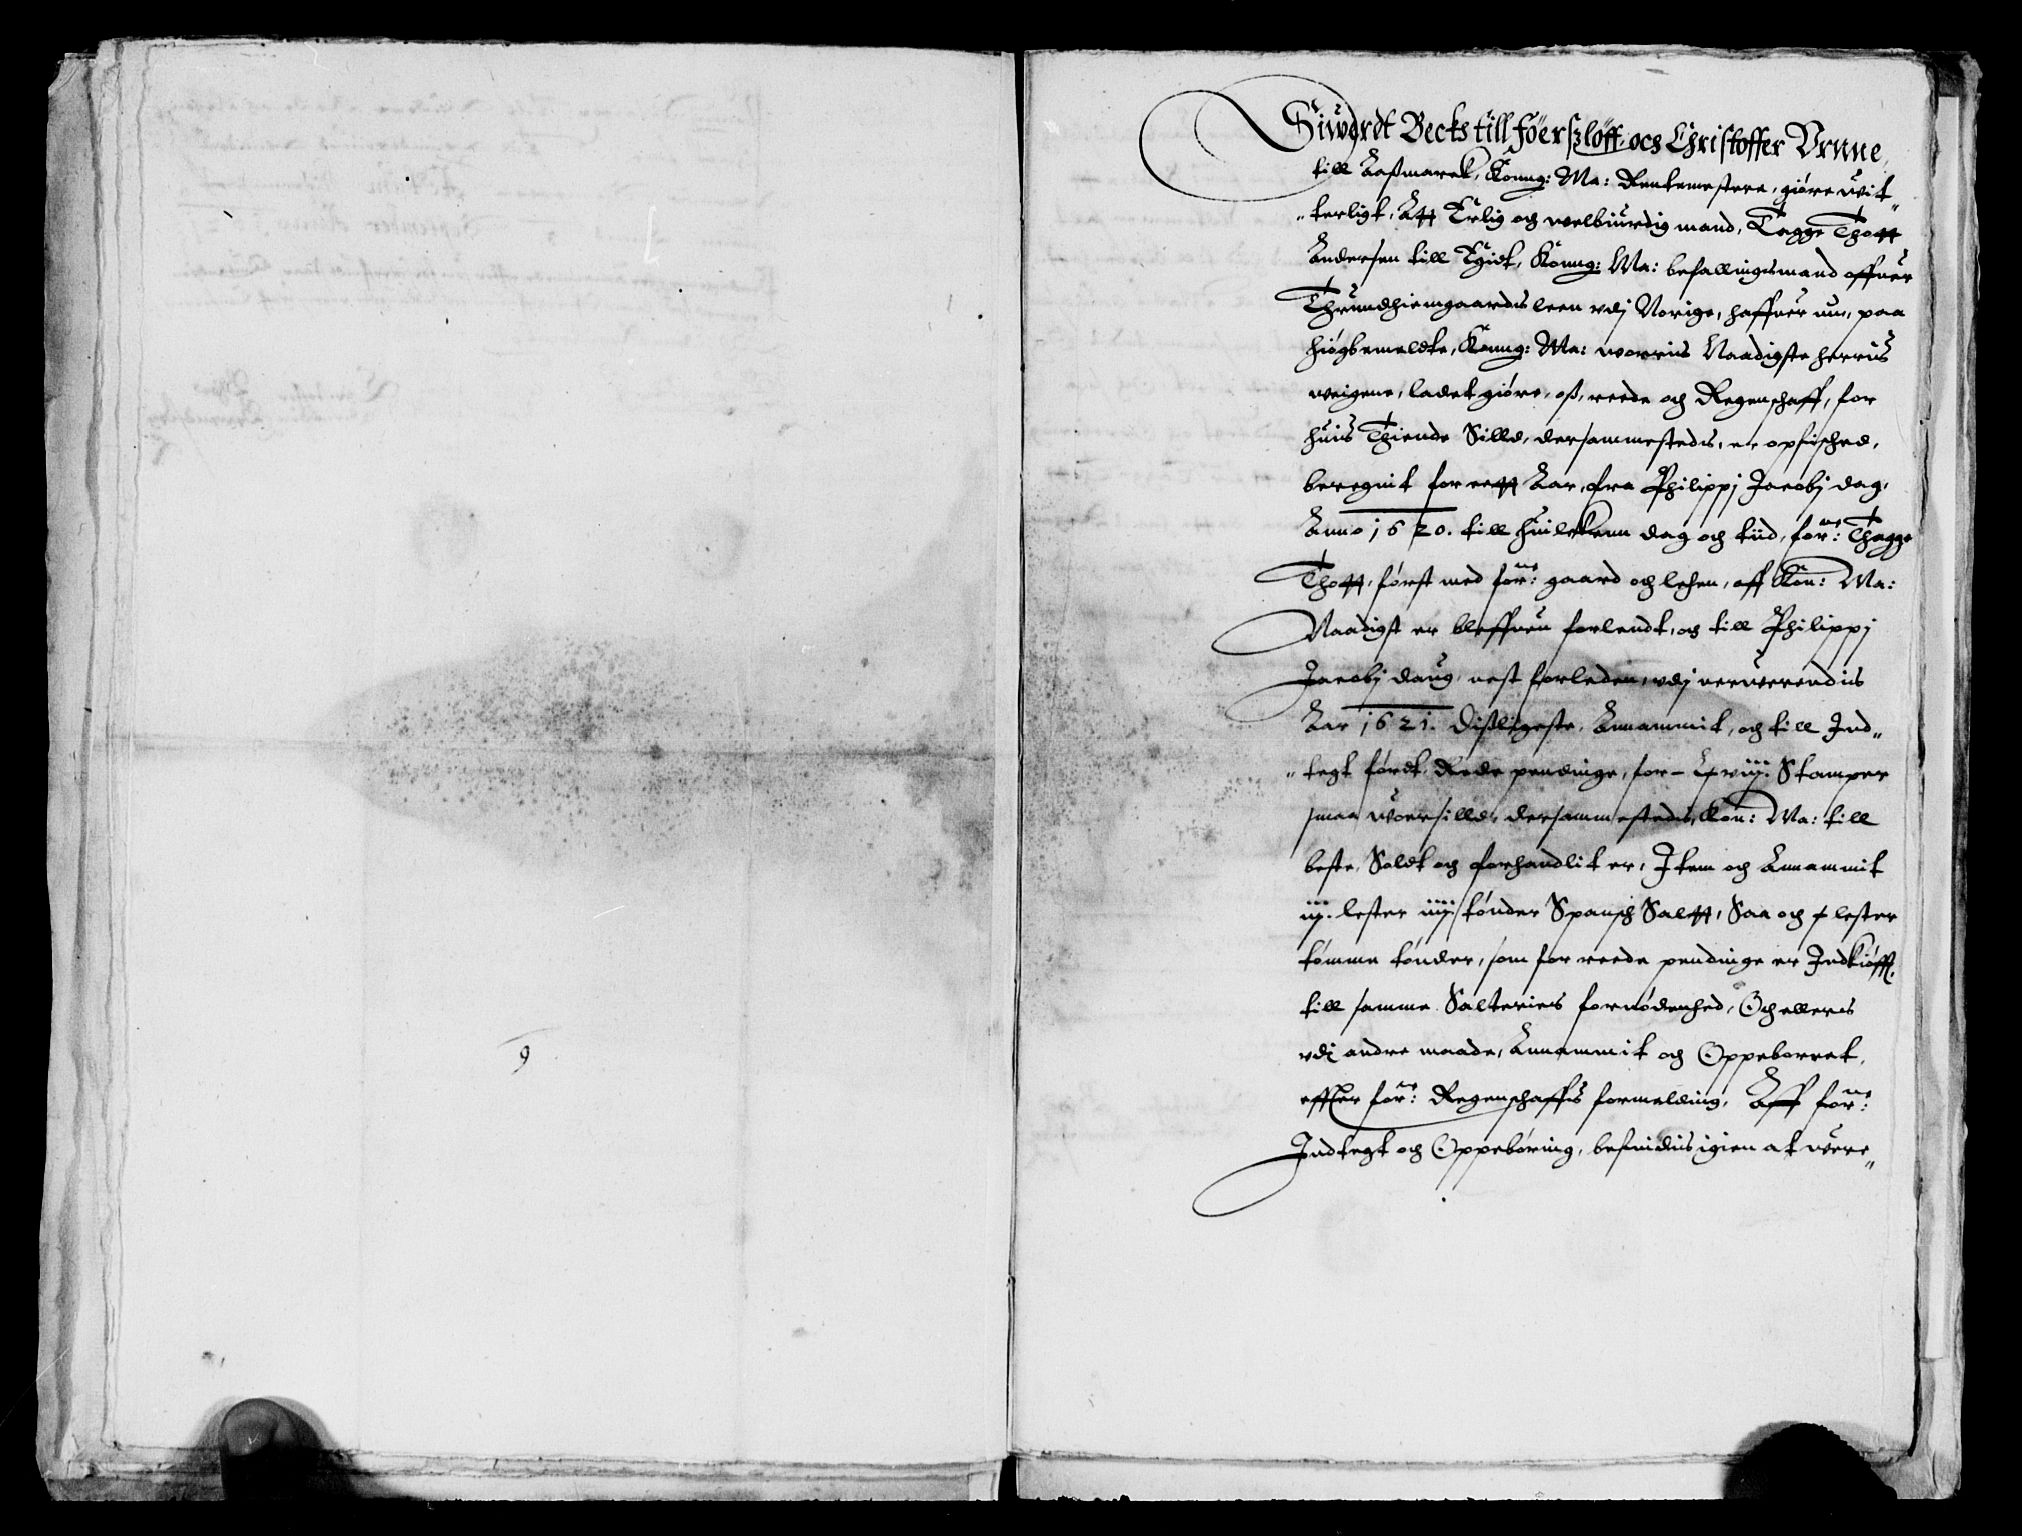 9
Siwerdt Becks till Föerszlöff, och Christoffer Vrnne,
till Aaßmarck, Konng: Ma: Rentemestere, giøre wit„
„terligt, Att Erlig och welbiurdig mand, Tagge Thott
Andersen till Egidt, Konng: Ma: befallingsmand offuer
Thrundhiemgaards leen vdj Norige, haffuer nu, paa
høgbemeldte, Konng: Ma: worris Naadigste herris
weigene, ladet giøre, oß, reede och Regenschaff, for
huis Thiende Silld, dersammesteds, er opfisched,
beregnit for eett Aar, fra Philippj Jacobj dag,
Anno 1620. till huilcken dag och tiid, for:ne Thagge
Thott, først med for:ne gaard och lehen, aff Kon: Ma:
Naadigst er bleffuen forlendt, och till Philippj
Jacobj daug, nest forleden, vdj nerwerendis
Aar 1621. Disligeste, Annammit, och till Ind„
„tegt førdt, Rede pendinge, for – Lxviij Stamper
smaa woersilld, dersammesteds, Kon: Ma: till
beste, Soldt och forhandlit er, Item och Annammit
iij. lester iiij tønder Spansch Saltt, Saa och x lester
tømme tønder, som for reede pendinge er Indkiøfft,
till samme Salteries fornødenhed, Och ellers
vdj andre maade, Annammit och Oppeborret,
effter for:ne Regenschaffs formelding, Aff for:ne
Indtegt och Oppebøring, befindis igien at were„